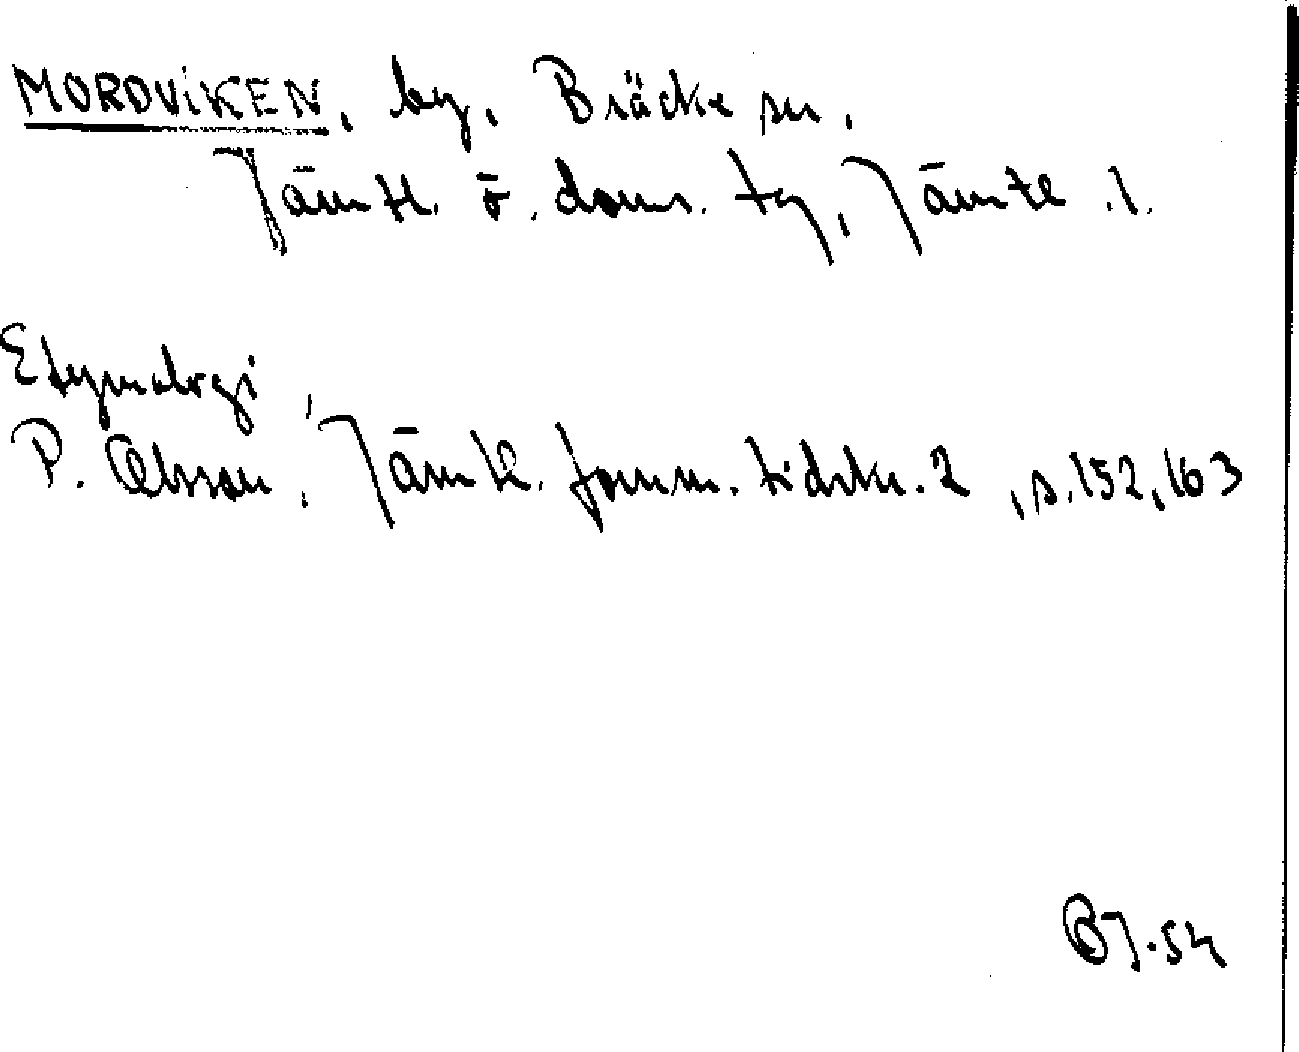 MORDVIKEN, by, Bräcke sn,
Jämtl. ö. doms. tg, Jämtl. l.
Etymologi,
P. Olsson, Jämtl. fornm. tidskr. 2, s. 152, 163
BJ. 54